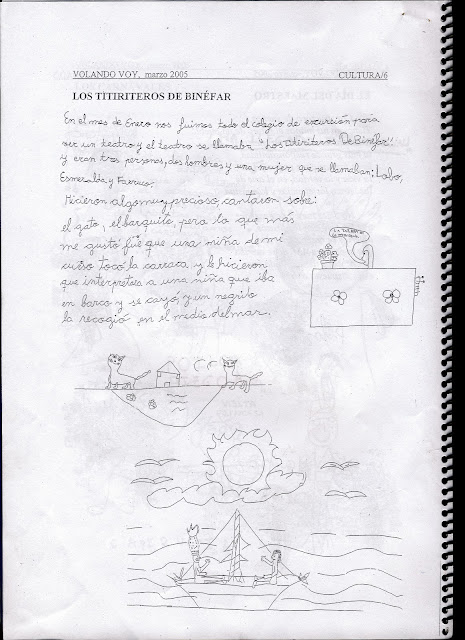 VOLANDO VOY, marzo 2005 CULTURA/6
LOS TITIRITEROS DE BINÉFAR
En el mes de Enero nos fuimos todo el colegio de excursión para
ver un teatro y el teatro se llamaba "Los titiriteros De Binéfar"
y eran tres personas, dos hombres y una mujer que se llamaban: Lobo,
Esmeralda y
Hicieron algo muy precioso, cantaron sobre:
el gato, el barquito, pero lo que más
me gustó fue que una niña de mi
curso tocó la carraca y le hicieron
que interpretara a una niña que iba
en barco y se cayó, y un negrito
la recogió en el medio del mar.